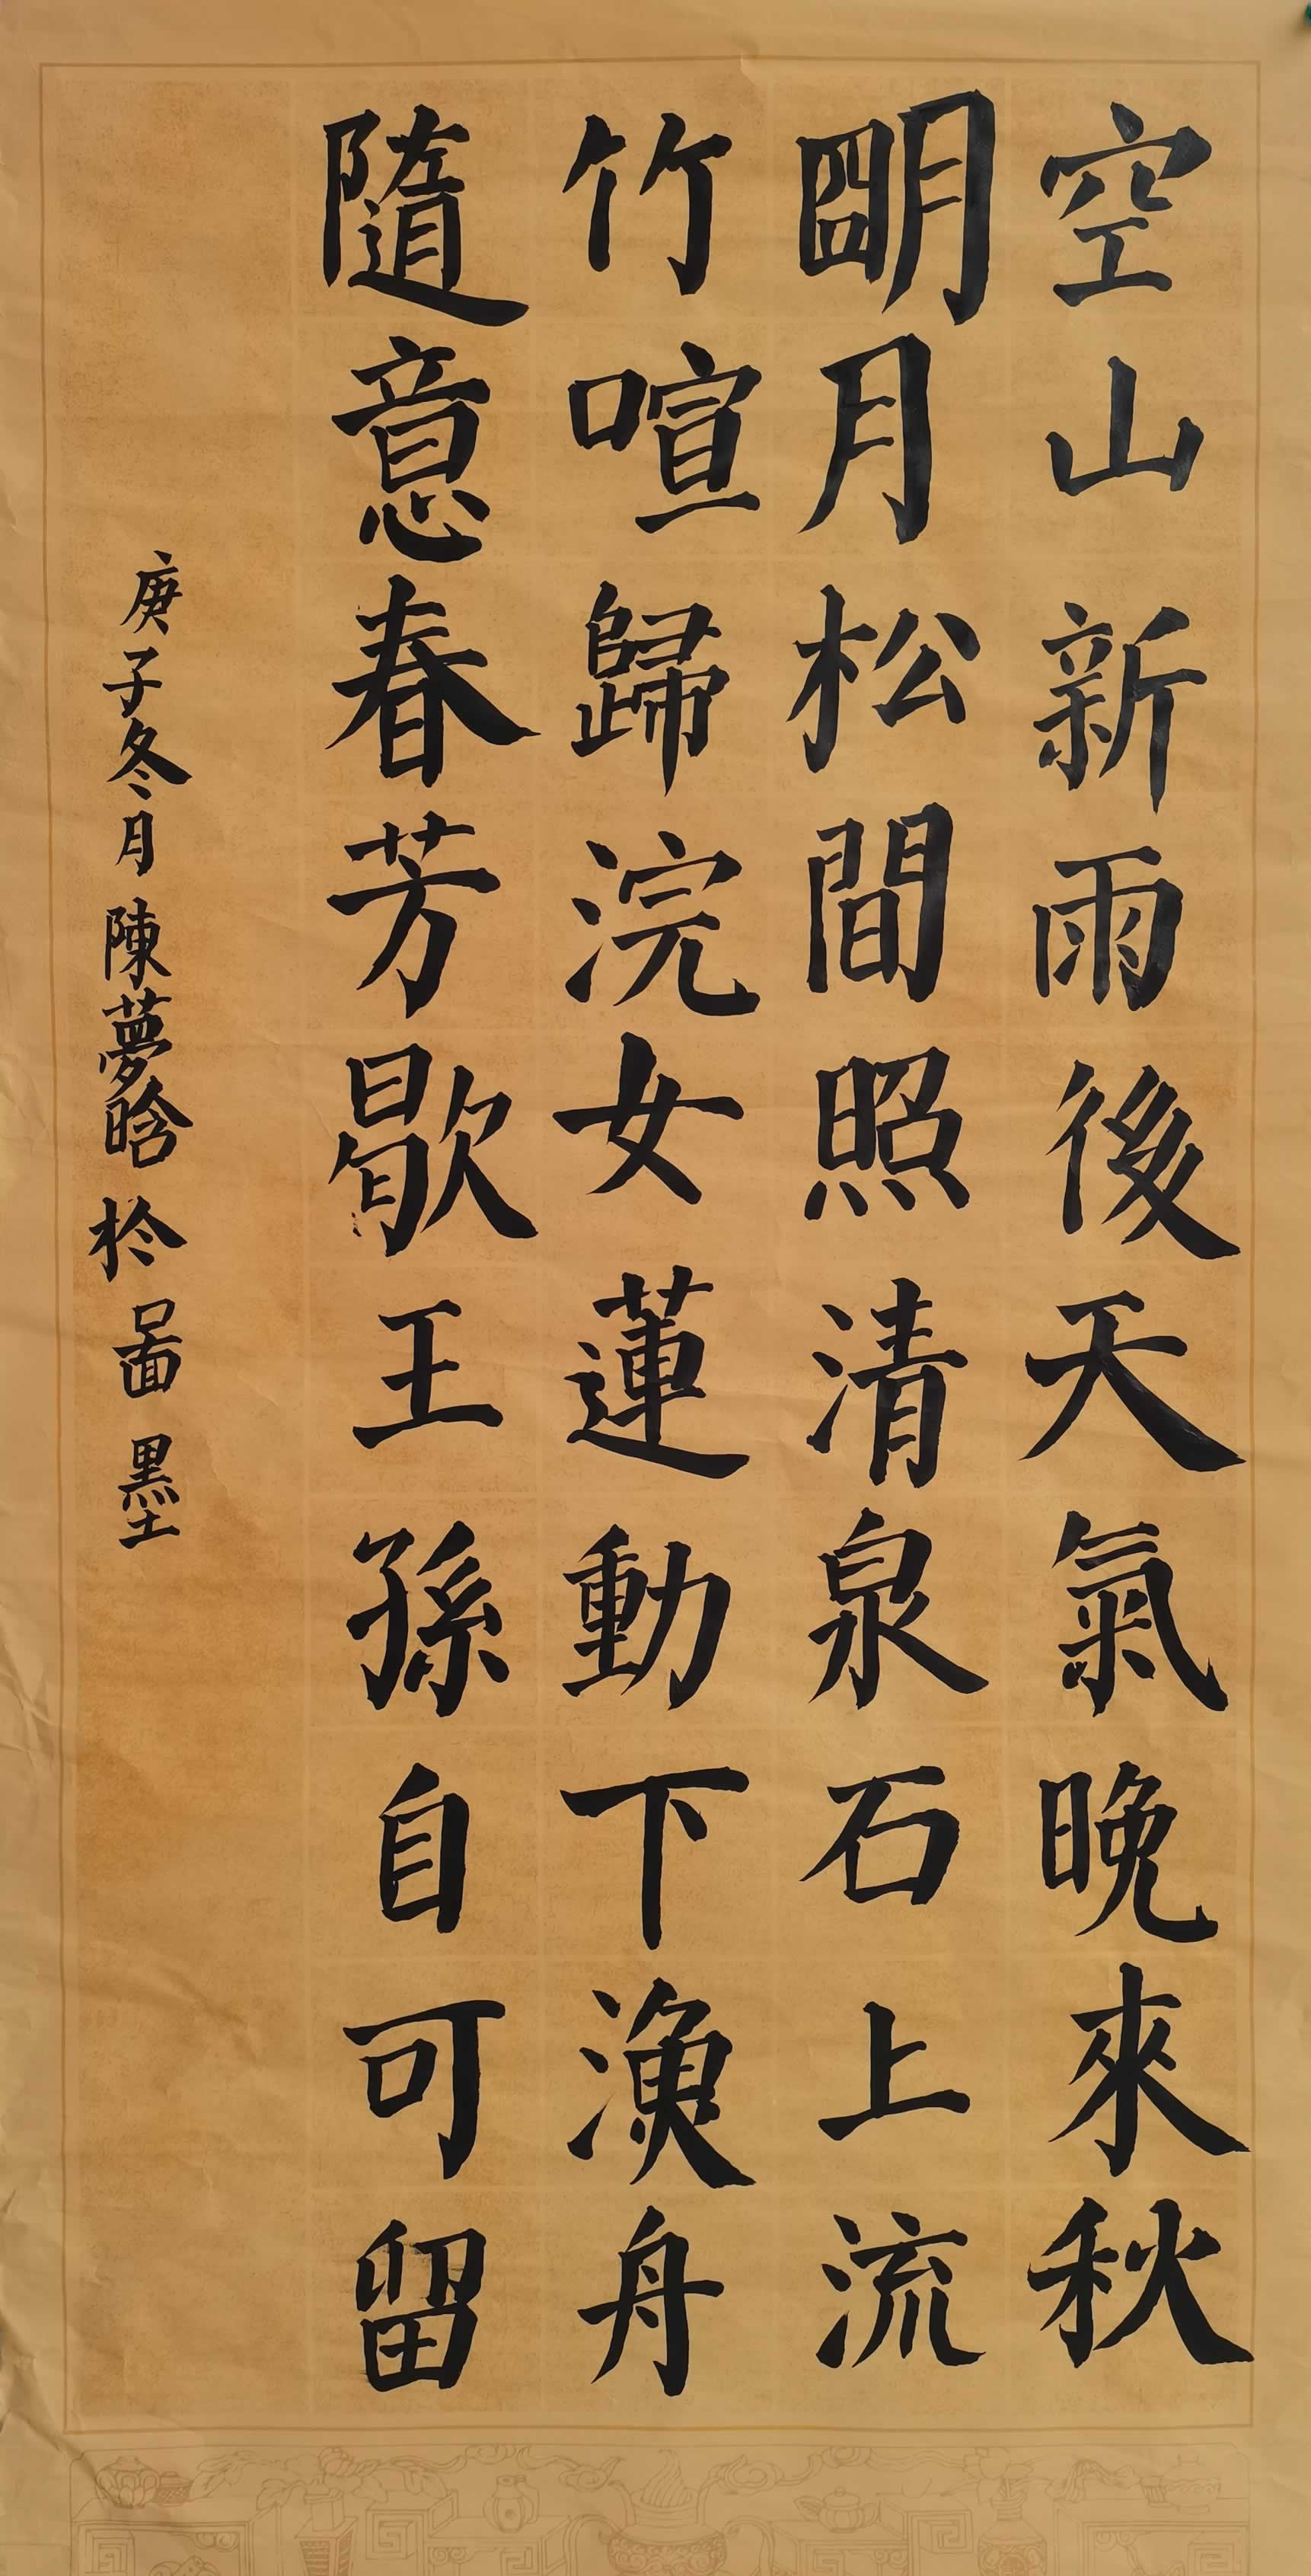 空山新雨後天氣晚來秋
朙月松間照清泉石上流
竹喧歸浣女蓮動下漁舟
隨意春芳歇王孫自可留
庚子冬月陳夢晗於啚墨